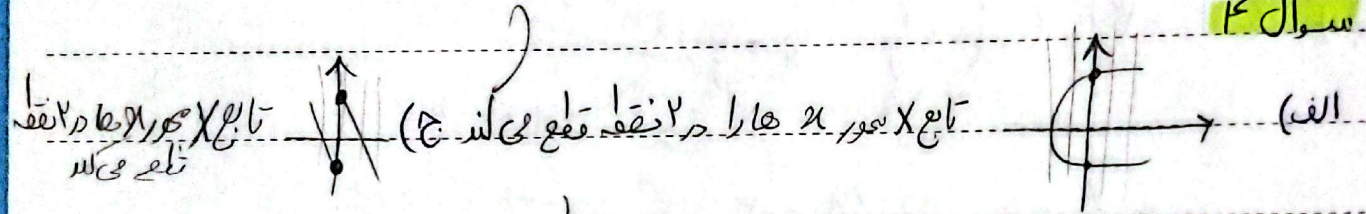 سوال ۴
الف) تابع X محور x ها را در ۲ نقطه قطع می کند ج) تابع X محور x ها در ۲ نقطه
قطع می کند